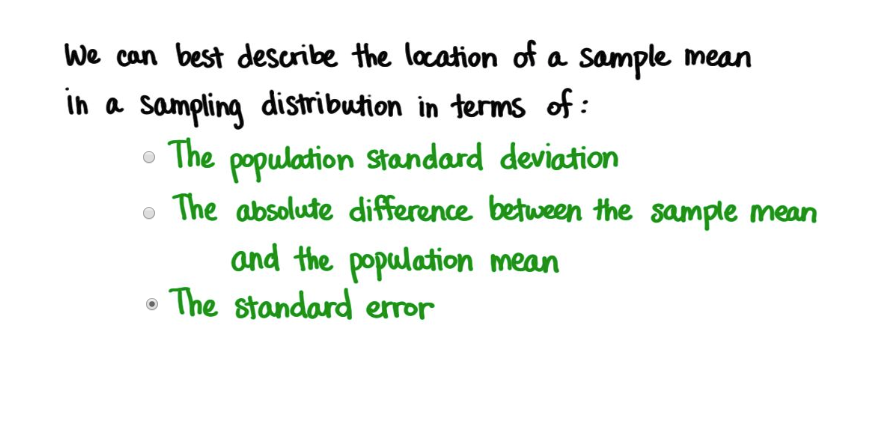 We can best describe the location of a sample mean
in a sampling distribution in terms of:
The population standard deviation
The absolute difference between the sample mean
and the population mean
The standard error